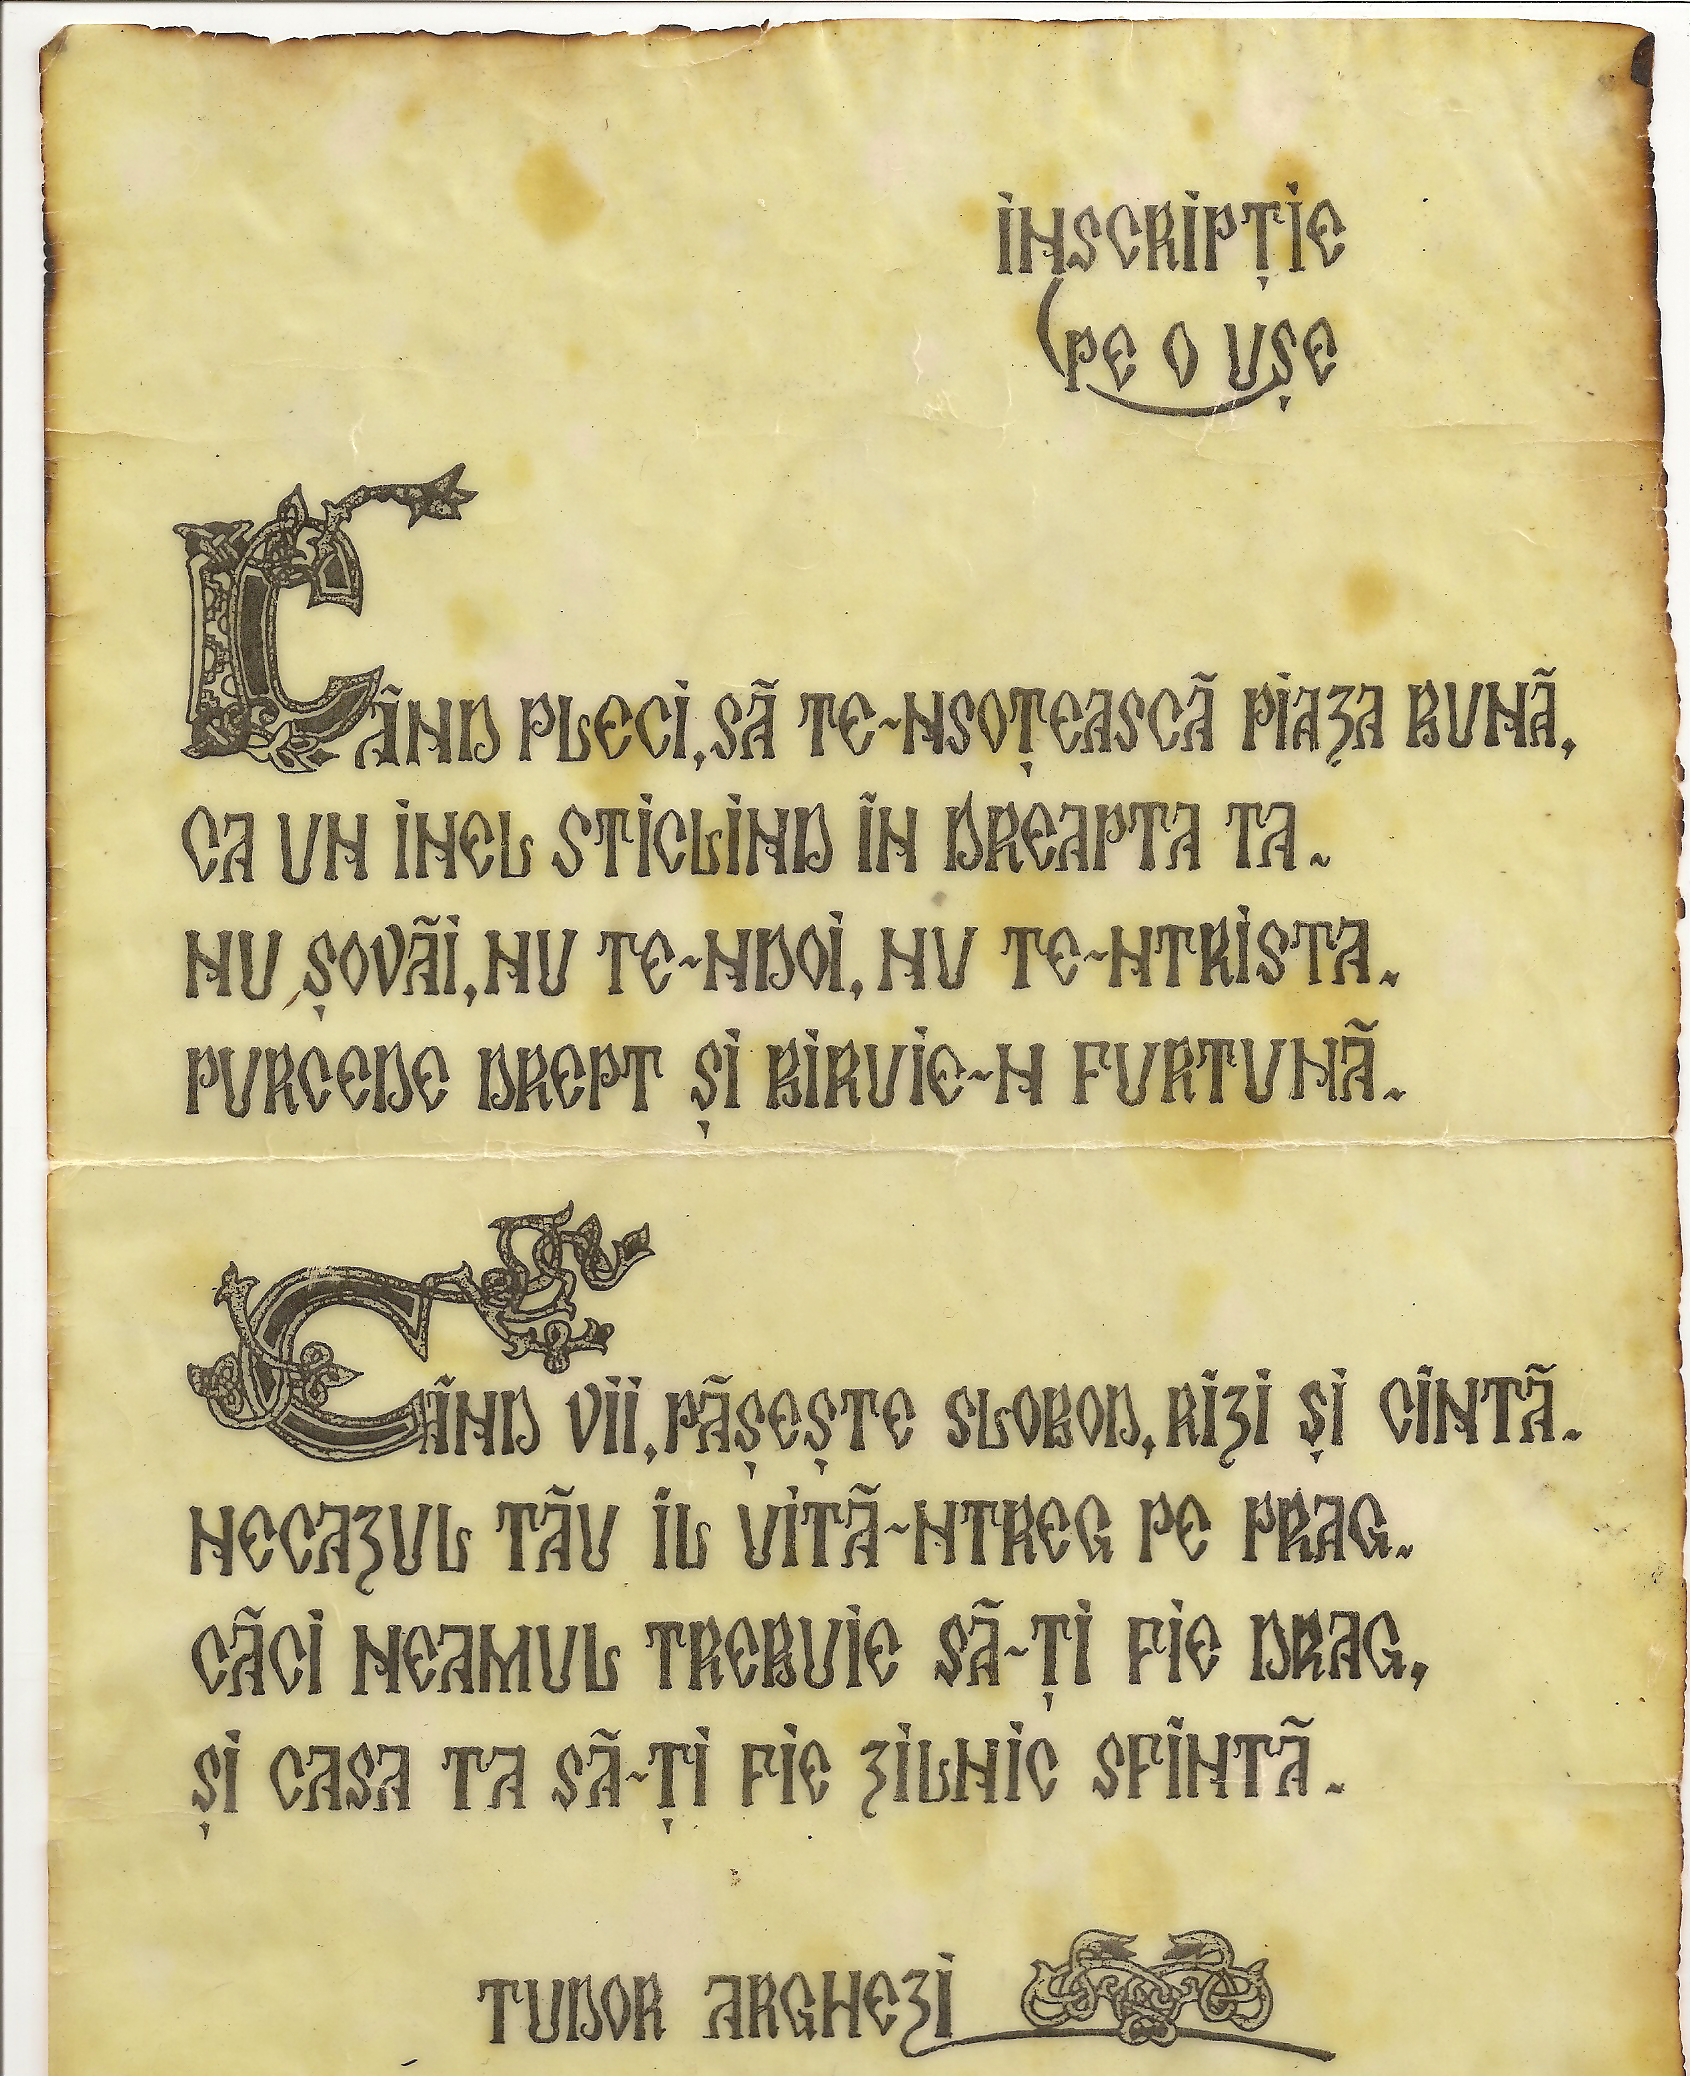 INSCRIPȚIE
PE O UȘE
CÂND PLECI, SĂ TE-NSOȚEASCĂ PIAZA BUNĂ,
CA UN INEL STICLIND ÎN DREAPTA TA.
NU ȘOVĂI, NU TE-NDOI, NU TE-NTRISTA.
PURCEDE DREPT ȘI BIRUIE-N FURTUNĂ.
CÂND VII, PĂȘEȘTE SLOBOD, RÎZI ȘI CÎNTĂ.
NECAZUL TĂU ÎL UITĂ-NTREG PE PRAG.
CĂCI NEAMUL TREBUIE SĂ-ȚI FIE DRAG,
ȘI CASA TA SĂ-ȚI FIE ZILNIC SFÎNTĂ.
TUDOR ARGHEZI